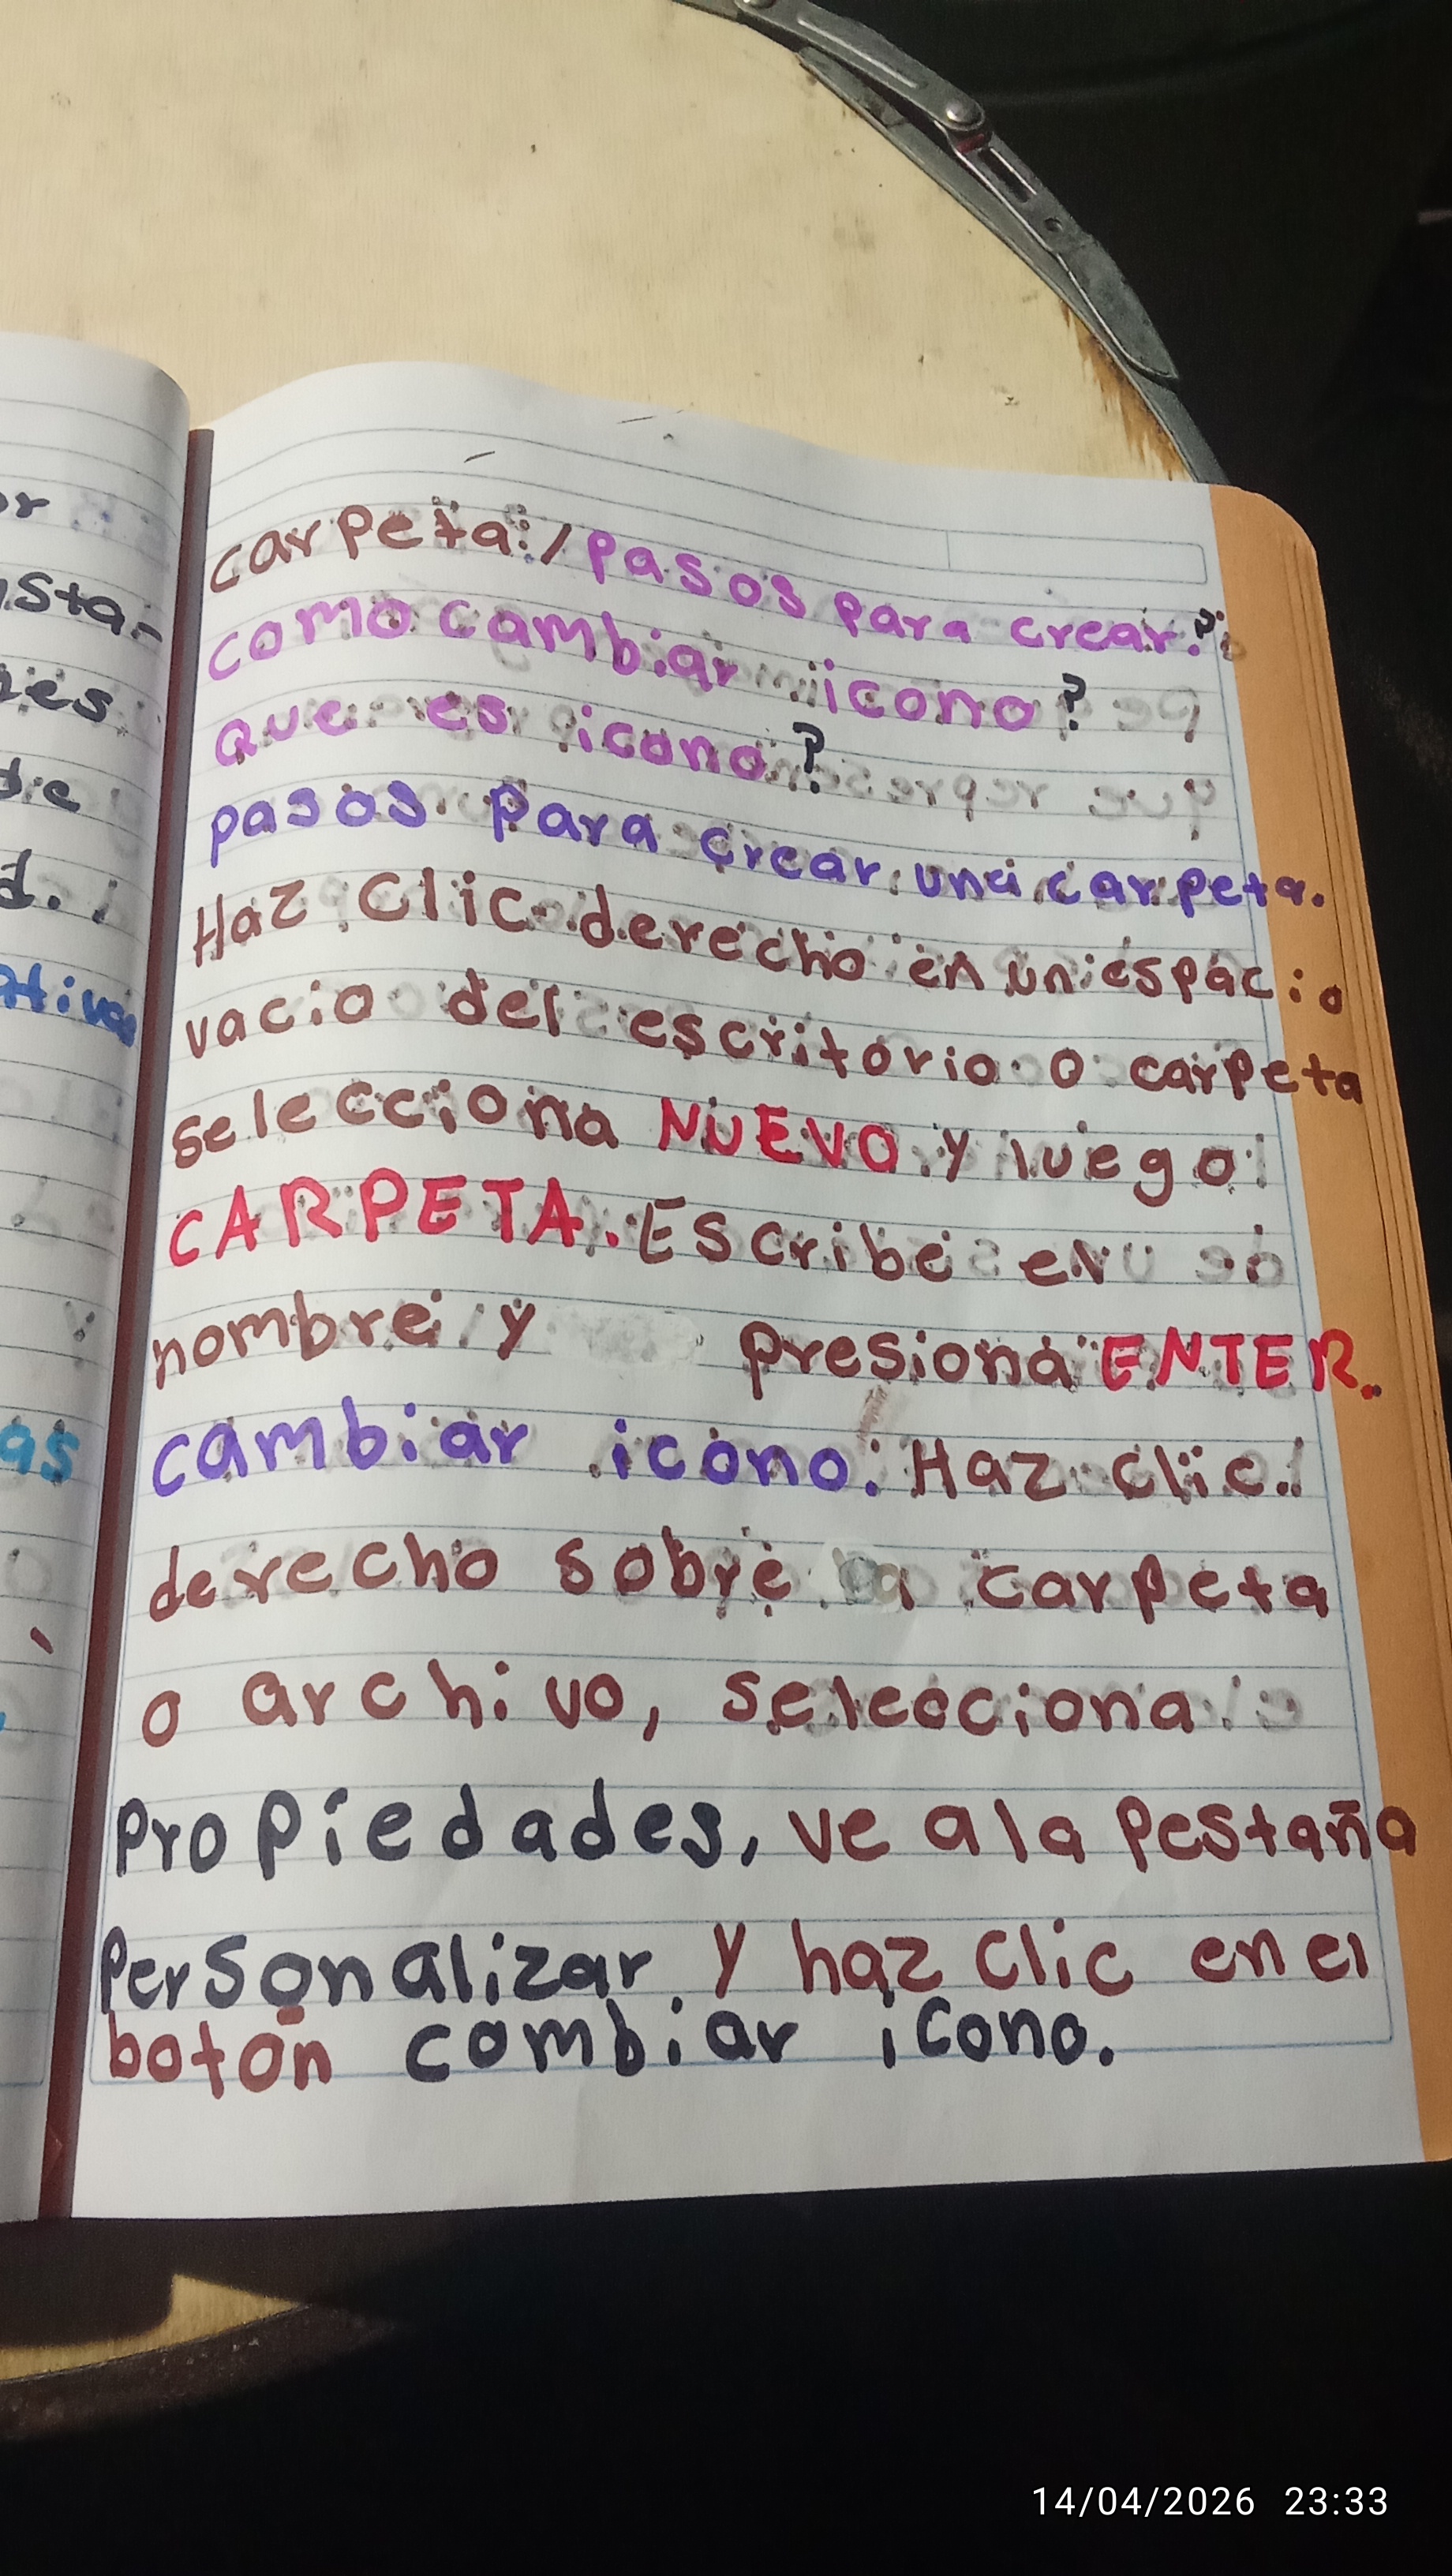 or
sta-
es
die
d.
ativas
as
carpeta:/pasos para crear?
como cambiar icono?
que es icono?
pasos para crear una carpeta.
Haz Clic derecho en un espacio
vacio del escritorio o carpeta
selecciona NUEVO y luego
CARPETA. Escribe el
nombre y presiona ENTER.
cambiar icono: Haz clic
derecho sobre la carpeta
o archivo, selecciona
Propiedades, ve a la Pestaña
Personalizar y haz Clic en el
botón combiar icono.
14/04/2026 23:33